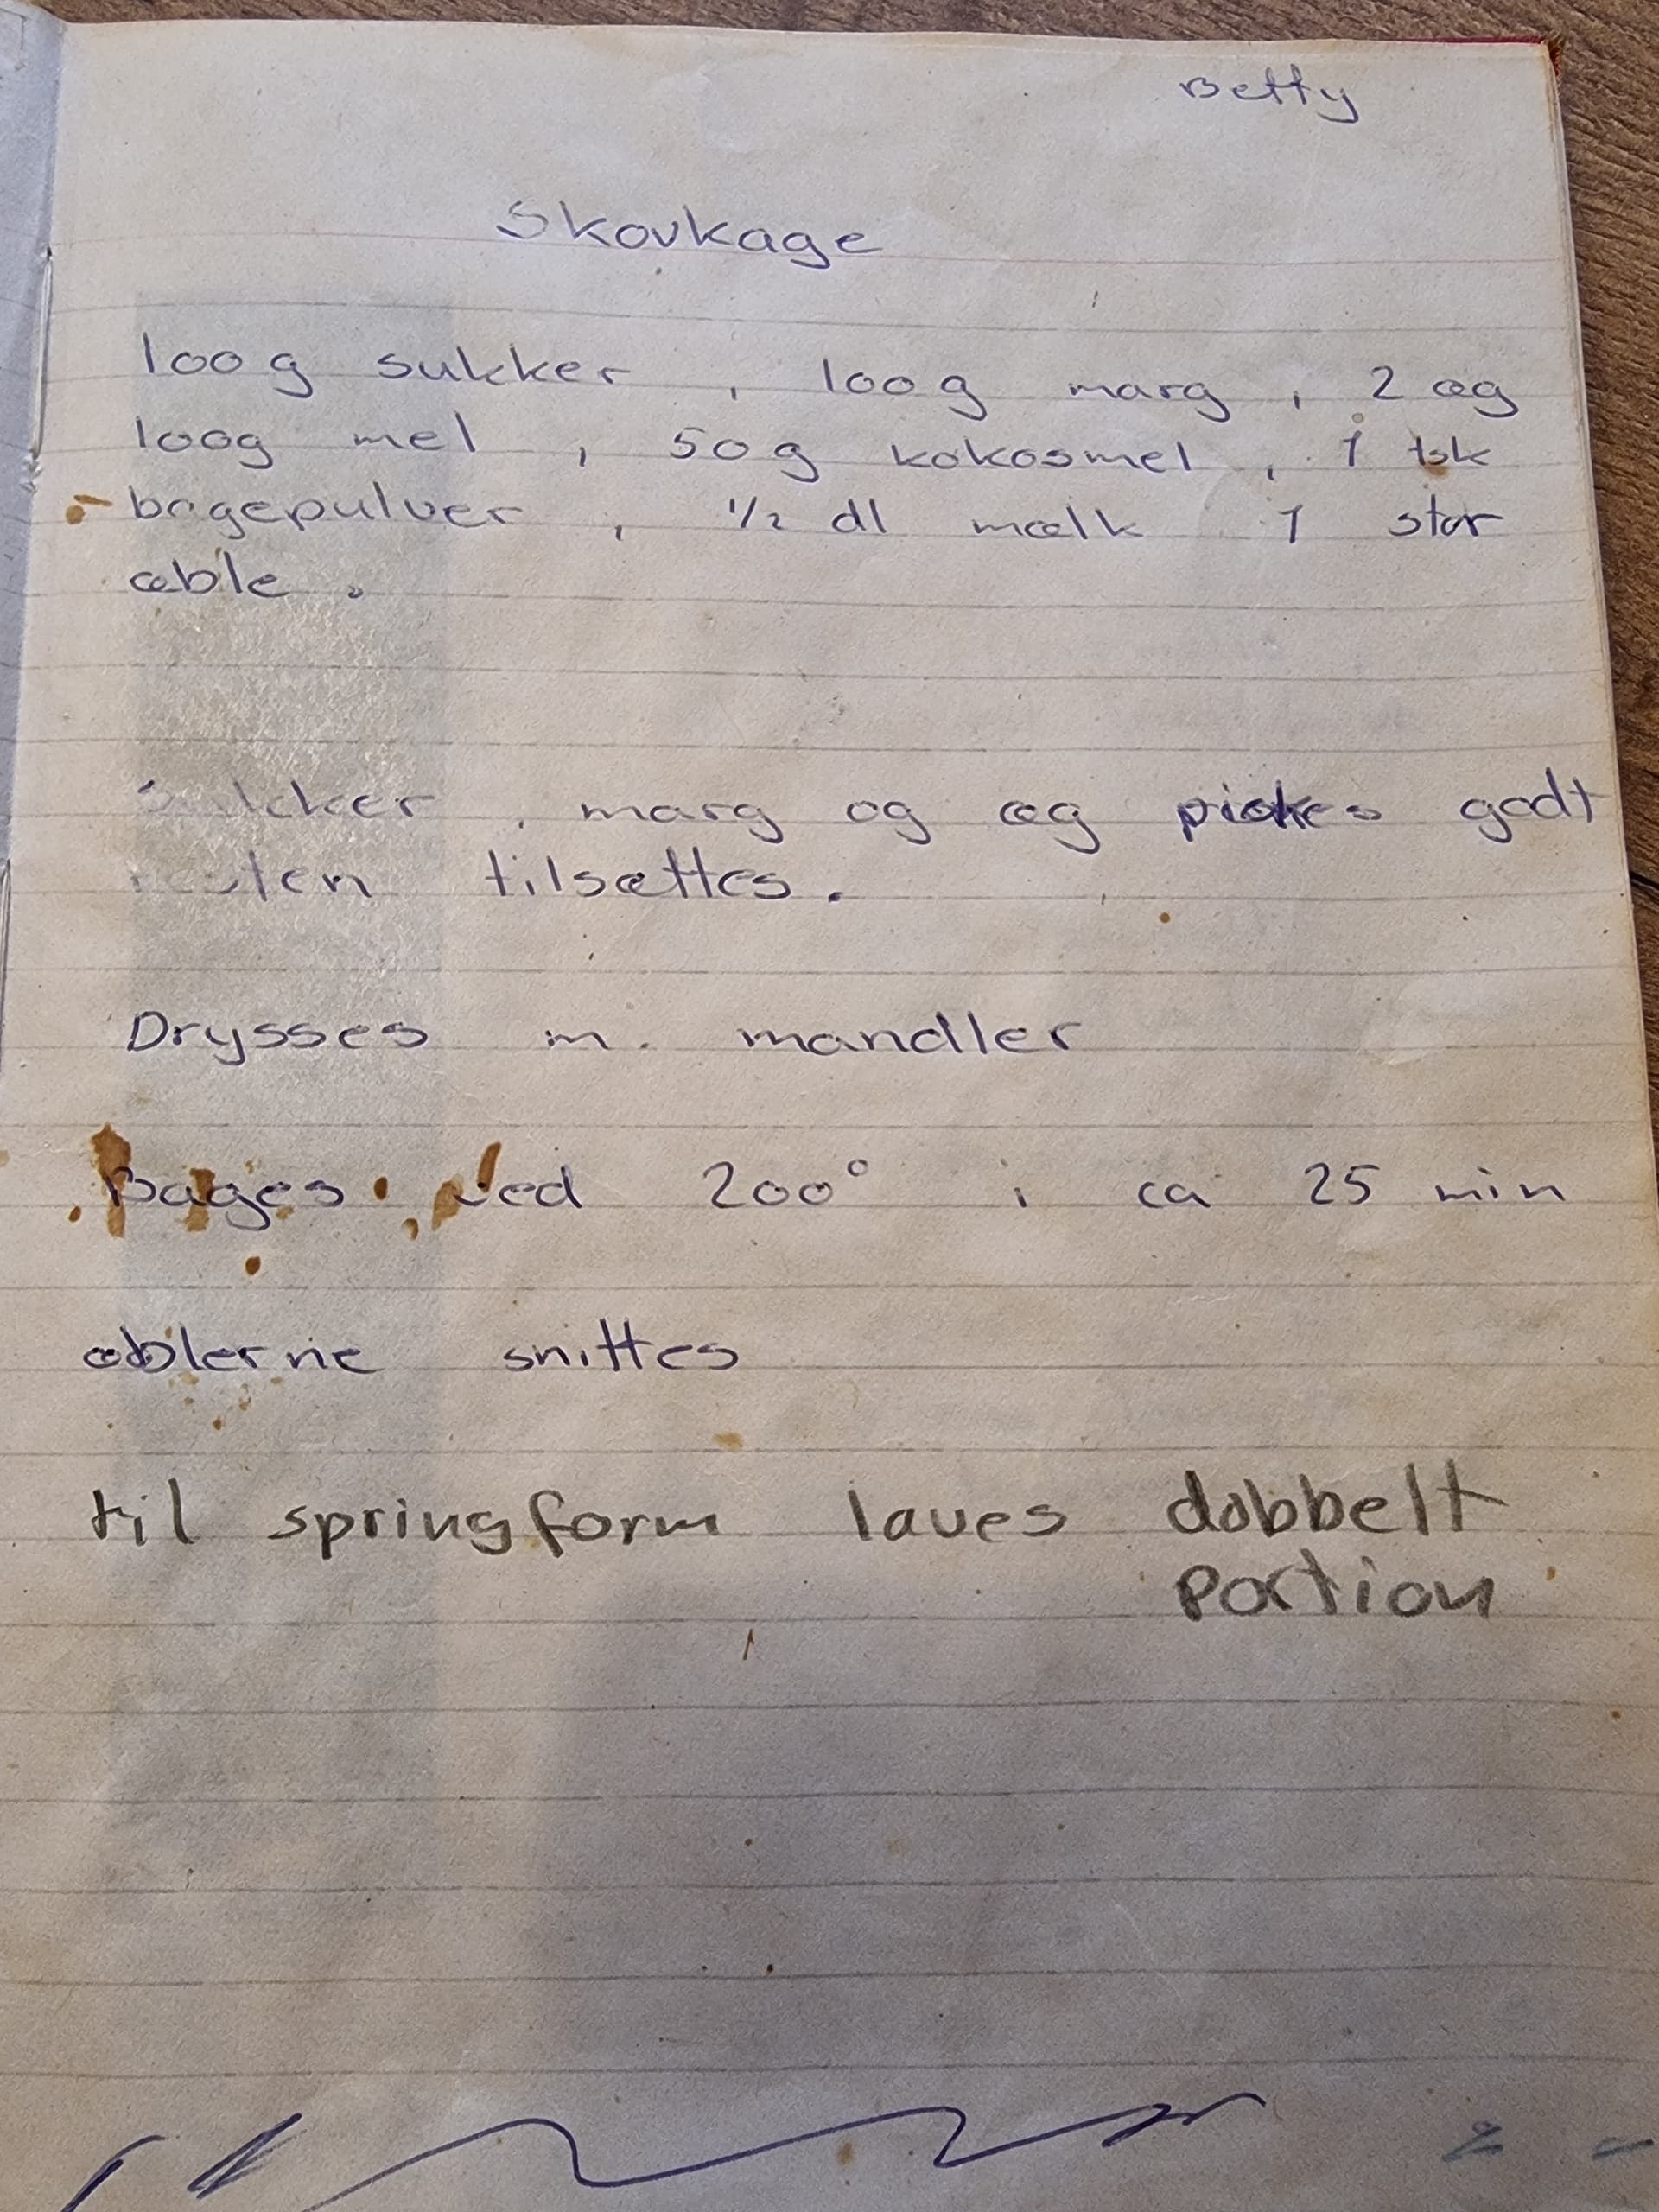 Betty
Skovkage
100 g sukker , 100 g marg , 2 æg
100g mel , 50 g kokosmel , 1 tsk
bagepulver , 1/2 dl mælk 1 stor
æble .
Sukker , marg og æg piskes godt
resten tilsættes .
Drysses m. mandler
Bages ved 200° i ca 25 min
æblerne snittes
til springform laves dobbelt
portion